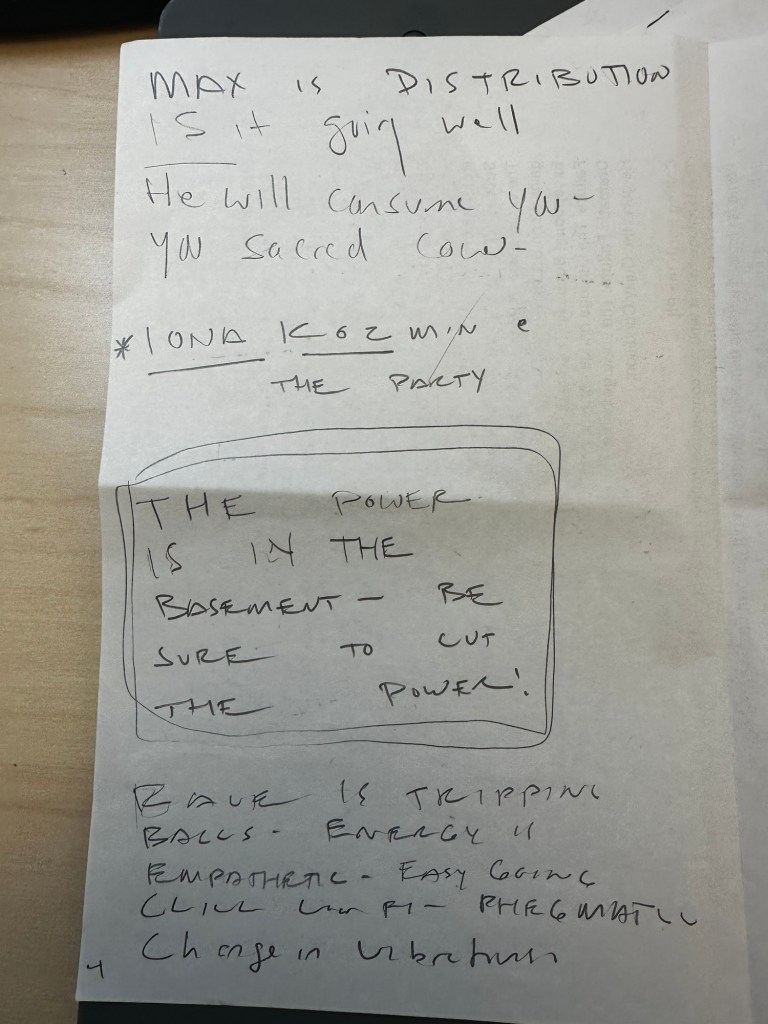 MAX IS DISTRIBUTION
IS it going well
He will consume you -
you sacred cow -
* IONA KOZMIN e
THE PARTY
THE POWER
IS IN THE
BASEMENT - BE
SURE TO CUT
THE POWER!
IS TRIPPING
BALLS - ENERGY IS
EMPATHETIC - EASY GOING
PHEGMATIC
Change in vibrations
4